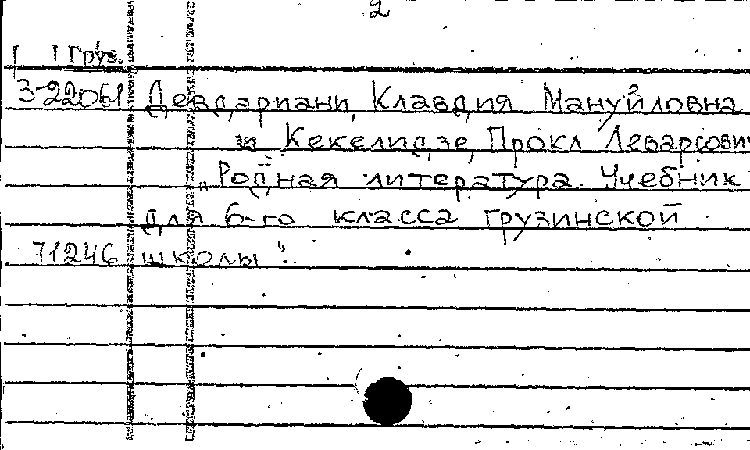 2
Груз.
3-22061 Девдариани, Клавдия Мануйловна
и Кекелидзе, Прокл Леварсович
"Родная литература. Учебник
для 6-го класса грузинской
71246 школы".